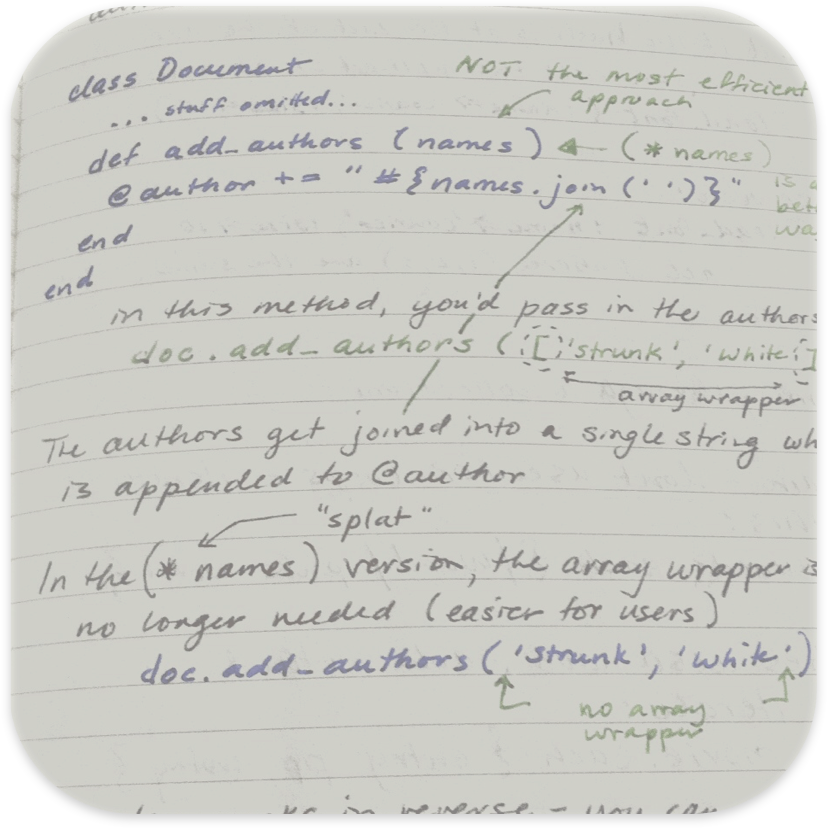 class Document
NOT the most efficient
approach
... stuff omitted...
def add_authors (names) ← (* names)
@author += "#{names.join(' ')}"
is a
end
end
in this method, you'd pass in the authors
doc.add_authors (['strunk', 'white']
array wrapper
The authors get joined into a single string wh
is appended to @author
"splat"
In the (* names) version, the array wrapper is
no longer needed (easier for users)
doc.add_authors ('strunk', 'white')
no array
wrapper
in reverse - you can